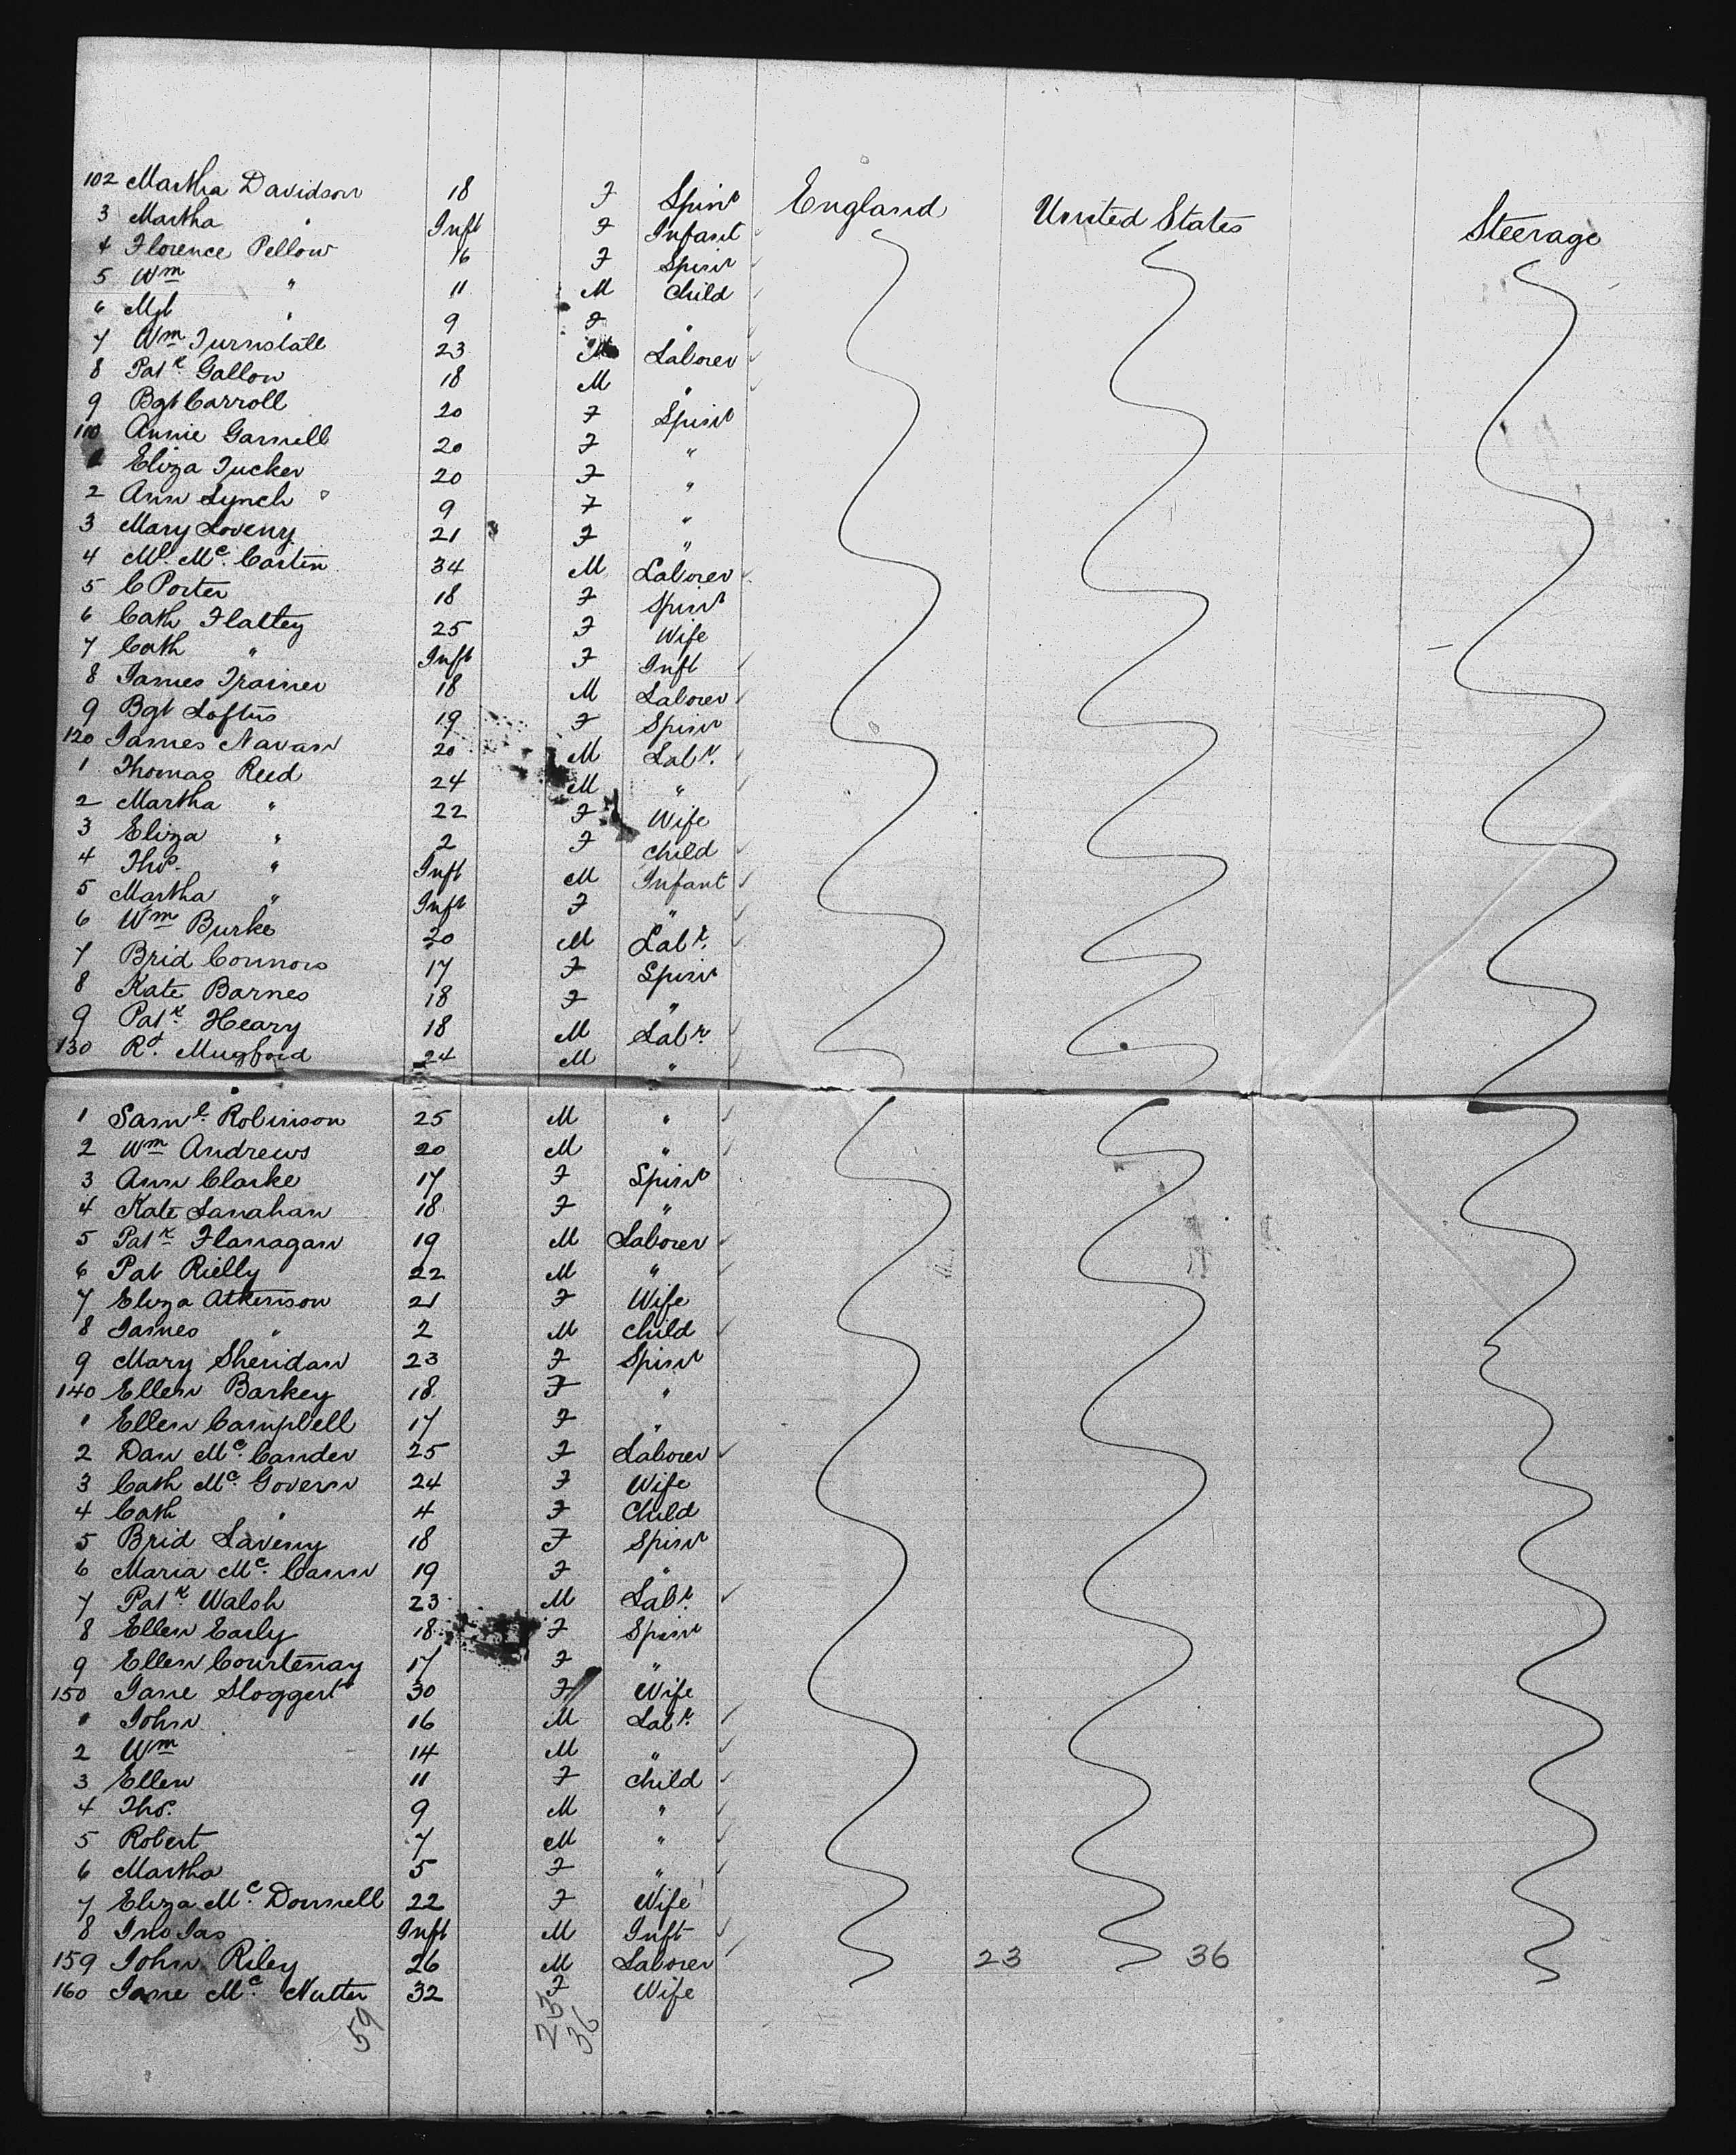 102 Martha Davidson 18 F Spinr England United States Steerage
3 Martha " Inft F Infant
4 Florence Pellow 16 F Spinr
5 Wm " 11 M Child
6 Mgt " 9 F "
7 Wm Turnstall 23 M Laborer
8 Patk Gallon 18 M "
9 Bgt Carroll 20 F Spinr
110 Annie Garnell 20 F "
1 Eliza Tucker 20 F "
2 Ann Lynch 9 F "
3 Mary Loveny 21 F "
4 Ml. Mc. Carten 34 M Laborer
5 C Porter 18 F Spinr
6 Cath Flattey 25 F Wife
7 Cath " Inft F Inft
8 James Trainer 18 M Laborer
9 Bgt Loftus 19 F Spinr
120 James Navan 20 M Labr.
1 Thomas Reed 24 M "
2 Martha " 22 F Wife
3 Eliza " 2 F Child
4 Thos. " Inft M Infant
5 Martha " Inft F "
6 Wm Burke 20 M Labr.
7 Brid Connors 17 F Spinr
8 Kate Barnes 18 F "
9 Patk. Heary 18 M Labr.
130 Rd. Mugford 24 M "
1 Saml. Robinson 25 M "
2 Wm Andrews 20 M "
3 Ann Clarke 17 F Spinr
4 Kate Lanahan 18 F "
5 Patk Flanagan 19 M Laborer
6 Pat Rielly 22 M "
7 Eliza Atkenson 21 F Wife
8 James " 2 M Child
9 Mary Sheridan 23 F Spinr
140 Ellen Barkey 18 F "
1 Ellen Campbell 17 F "
2 Dan Mc. Cander 25 F Laborer
3 Cath Mc. Govern 24 F Wife
4 Cath " 4 F Child
5 Brid Laveny 18 F Spinr
6 Maria Mc. Cann 19 F "
7 Patk. Walsh 23 M Labr.
8 Ellen Early 18 F Spinr
9 Ellen Courtenay 17 F "
150 Jane Sloggert 30 F Wife
1 John 16 M Labr.
2 Wm 14 M "
3 Ellen 11 F Child
4 Thos. 9 M "
5 Robert 7 M "
6 Martha 5 F "
7 Eliza Mc. Donnell 22 F Wife
8 Jno Jas Inft M Inft
159 John Riley 26 M Laborer 23 36
160 Jane Mc. Nutter 32 F Wife
59 23 36